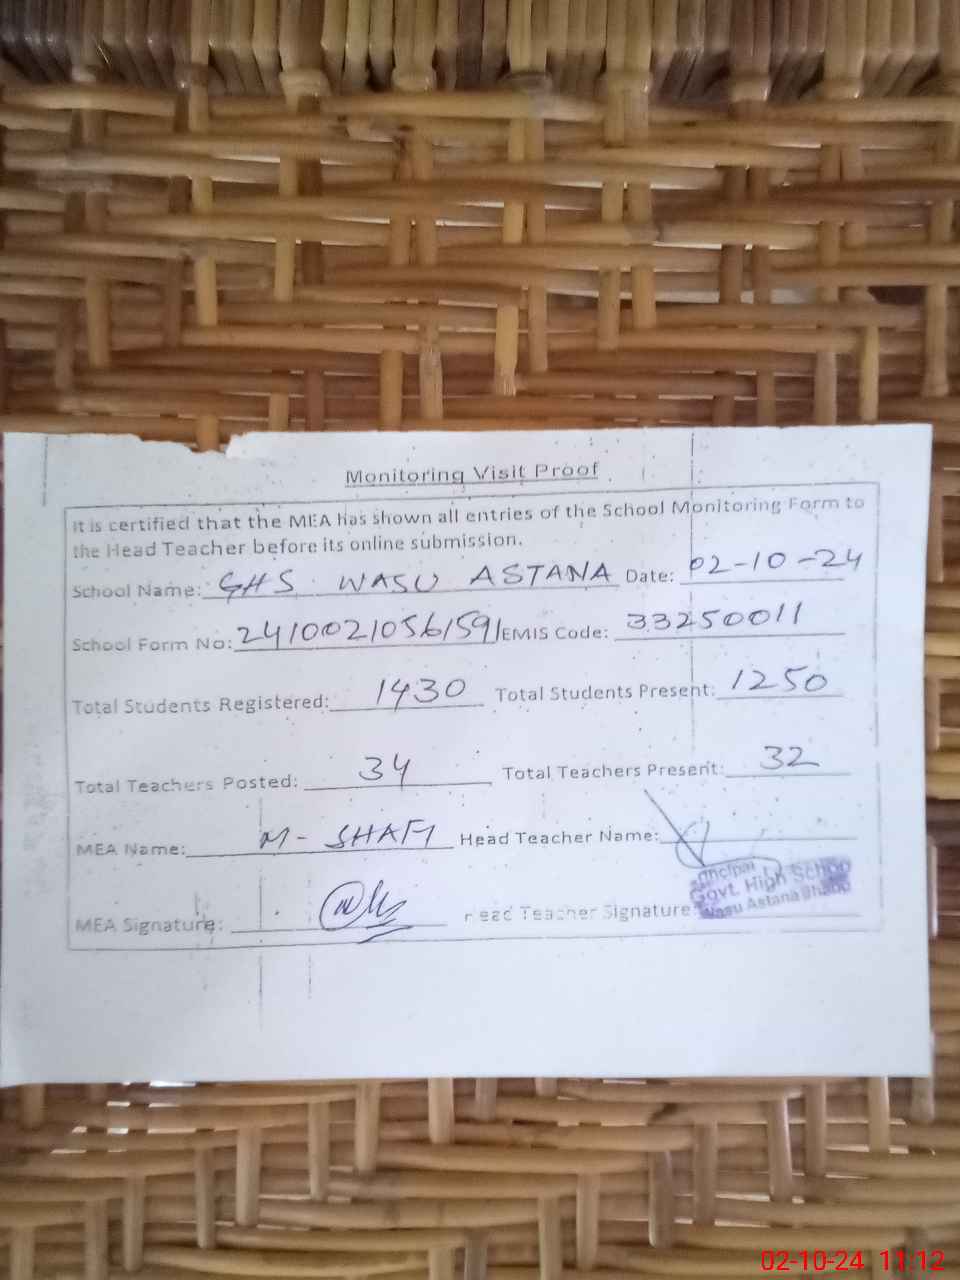 Monitoring Visit Proof
It is certified that the MEA has shown all entries of the School Monitoring Form to
the Head Teacher before its online submission.
School Name: GHS WASU ASTANA Date: 02-10-24
School Form No: 24100210561591 EMIS Code: 33250011
Total Students Registered: 1430 Total Students Present: 1250
Total Teachers Posted: 34 Total Teachers Present: 32
MEA Name: M- SHAFI Head Teacher Name:
Principal
Govt. High School
Wasu Astana
MEA Signature: Head Teacher Signature:
02-10-24 11:12